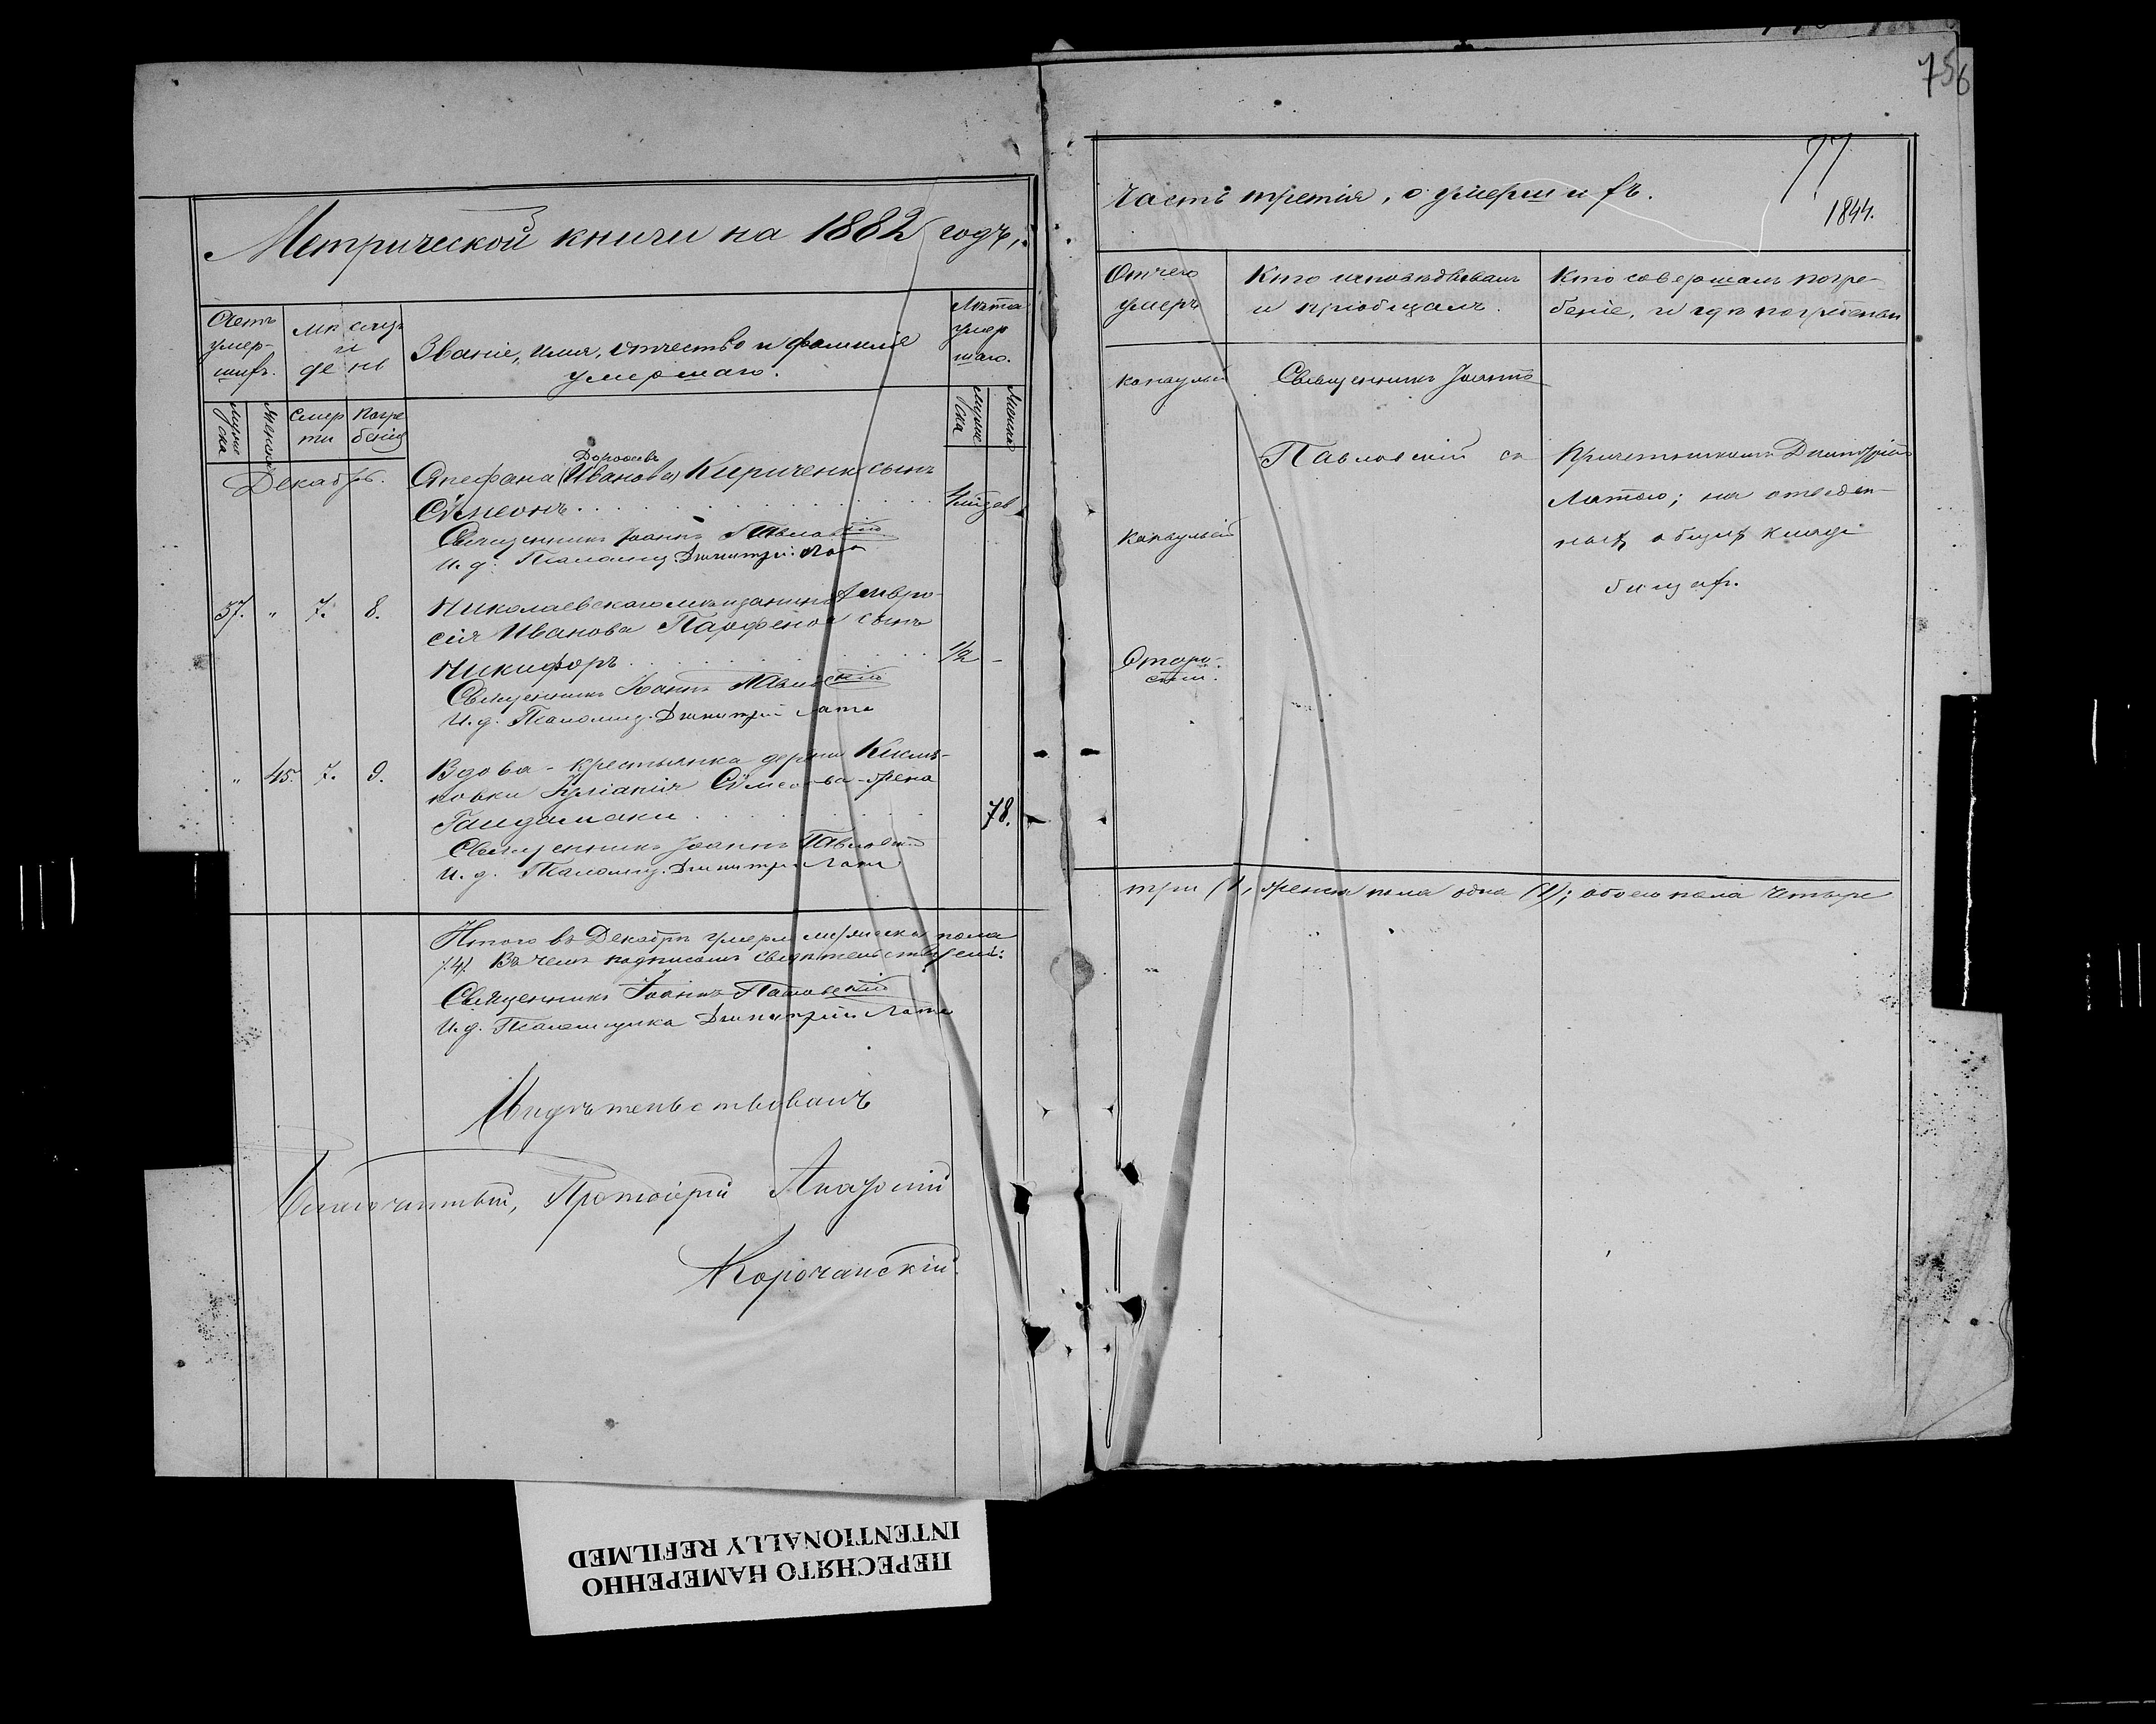 Метрической книги на 1882 годъ,
Счетъ умер-шихъ.
мѣсяцъ и день
Званіе, имя, отчество и фамилія
умершаго.
Лѣта умер шаго.
Мужеска
Женска
Смер ти
Погре бенія
Мужеска
Женска
Декабрь.
Стефана (Иванова) Кириченка сынъ
Сѵмеонъ
Священникъ Іоаннъ Павловскій
И. д. Псаломщ. Димитрій Лата
37. " 7. 8. Николаевскаго мѣщанина Амвро-
сія Иванова Парфенова сынъ
Никифоръ 1/2 -
Священникъ Іоаннъ Павловскій
И. д. Псаломщ. Димитрій Лата
" 45. 7. 9. Вдова-крестьянка дерев
новки Іуліанія Сѵмеонова-жена
Гайдамаки 78.
Священникъ Іоаннъ Павловскій
И. д. Псаломщ. Димитрій Лата
Итого въ Декабрѣ умерло мужеска пола
(4). Въ чемъ подписомъ свидѣтельствуемъ:
Священникъ Іоаннъ Павловскій
И. д. Псаломщика Димитрій Лата
Свидѣтельствовалъ
Благочинный, Протоіерей
Корочанскій.
756
77
Часть третія, о умершихъ.
1844.
Отчего
умеръ
Кто исповѣдывалъ
и пріобщалъ.
Кто совершалъ погре-
беніе, и гдѣ погребены
Священникъ Іоаннъ
Павловскій съ
Причетникомъ Димитріемъ
Латою; на отведен-
ныхъ общихъ клад
бищахъ.
Отъ старо-
сти.
три женска пола одна (1); обоего пола четыре
ПЕРЕСНЯТО НАМЕРЕННО
INTENTIONALLY REFILMED